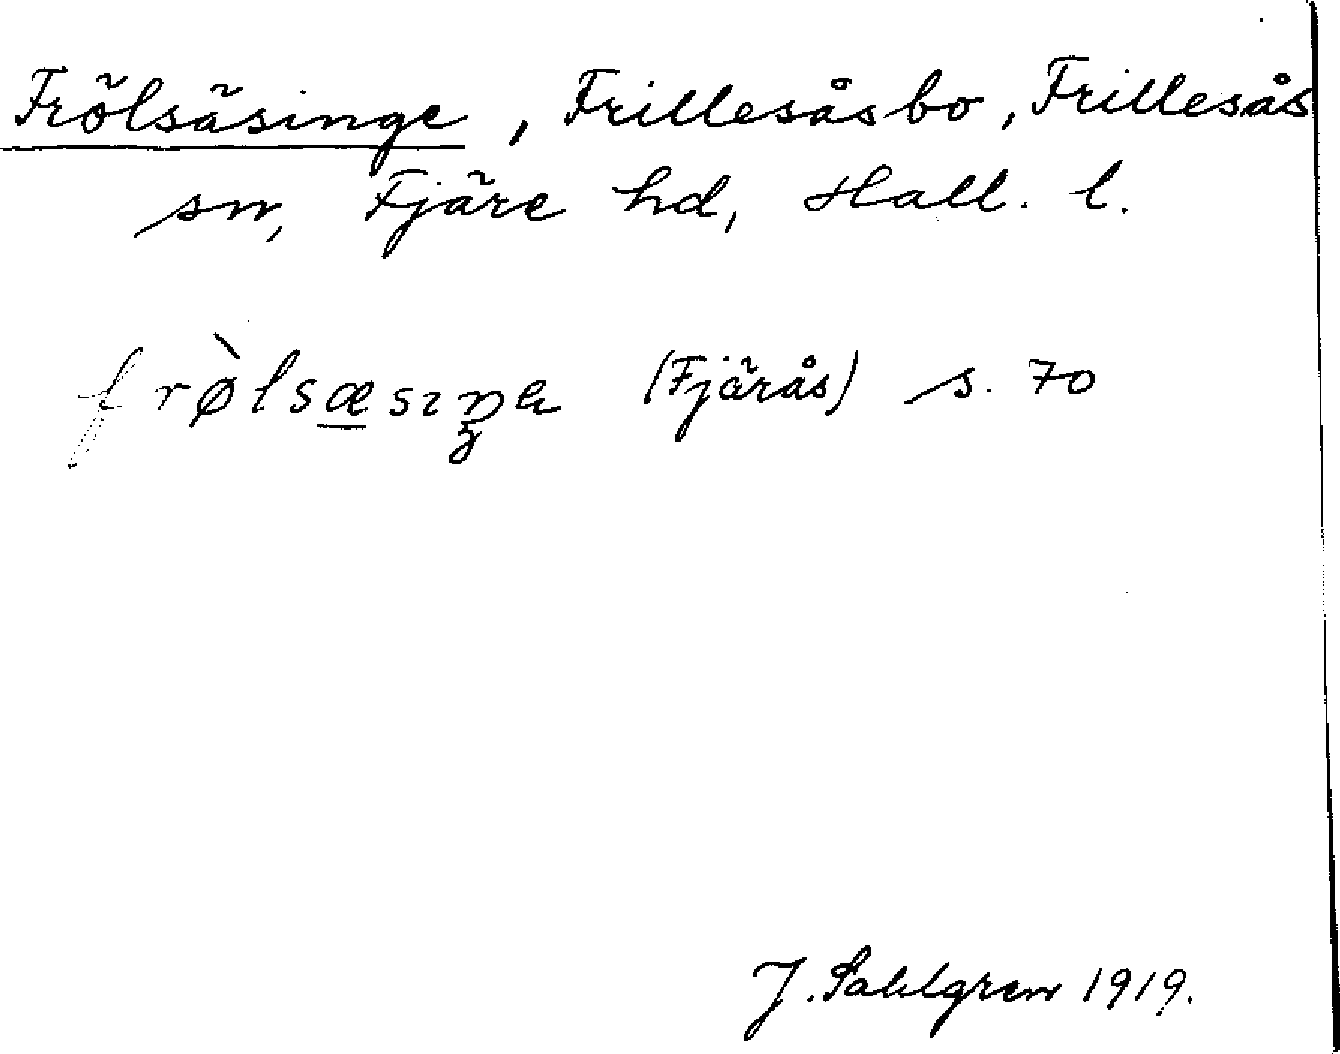 Frölsäsinge, Frillesåsbo, Frillesås
sn, Fjäre hd, Hall. l.
frø̀lsæsıŋɐ (Fjärås) s. 70
J. Sahlgren 1919.